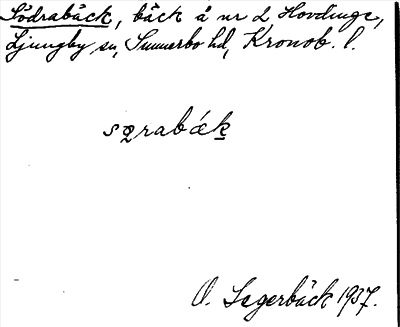 Södrabäck, bäck å nr 2 Hovdinge,
Ljungby sn, Sunnerbo hd, Kronob. l.
sǫrabǽk
O. Sagerbäck 1937.